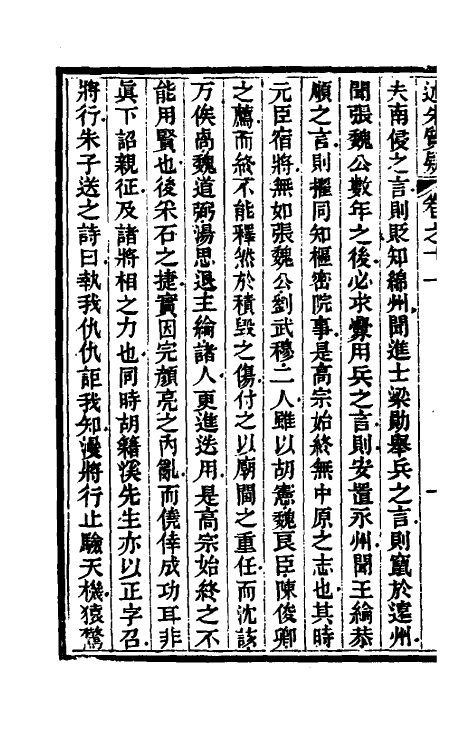 述朱質疑 卷之十一 一
夫南侵之言則貶知綿州聞進士梁勛舉兵之言則竄於遠州
聞張魏公數年之後必求釁用兵之言則安置永州聞王綸恭
順之言則擢同知樞密院事是高宗始終無中原之志也其時
元臣宿將無如張魏公劉武穆二人雖以胡憲魏良臣陳俊卿
之薦而終不能釋然於積毀之傷付之以廟閫之重任而沈該
万俟卨魏道弼湯思退王綸諸人更進迭用是高宗始終之不
能用賢也後采石之捷實因完顏亮之內亂而僥倖成功耳非
眞下詔親征及諸將相之力也同時胡籍溪先生亦以正字召
將行朱子送之詩曰執我仇仇詎我知漫將行止驗天機猿驚